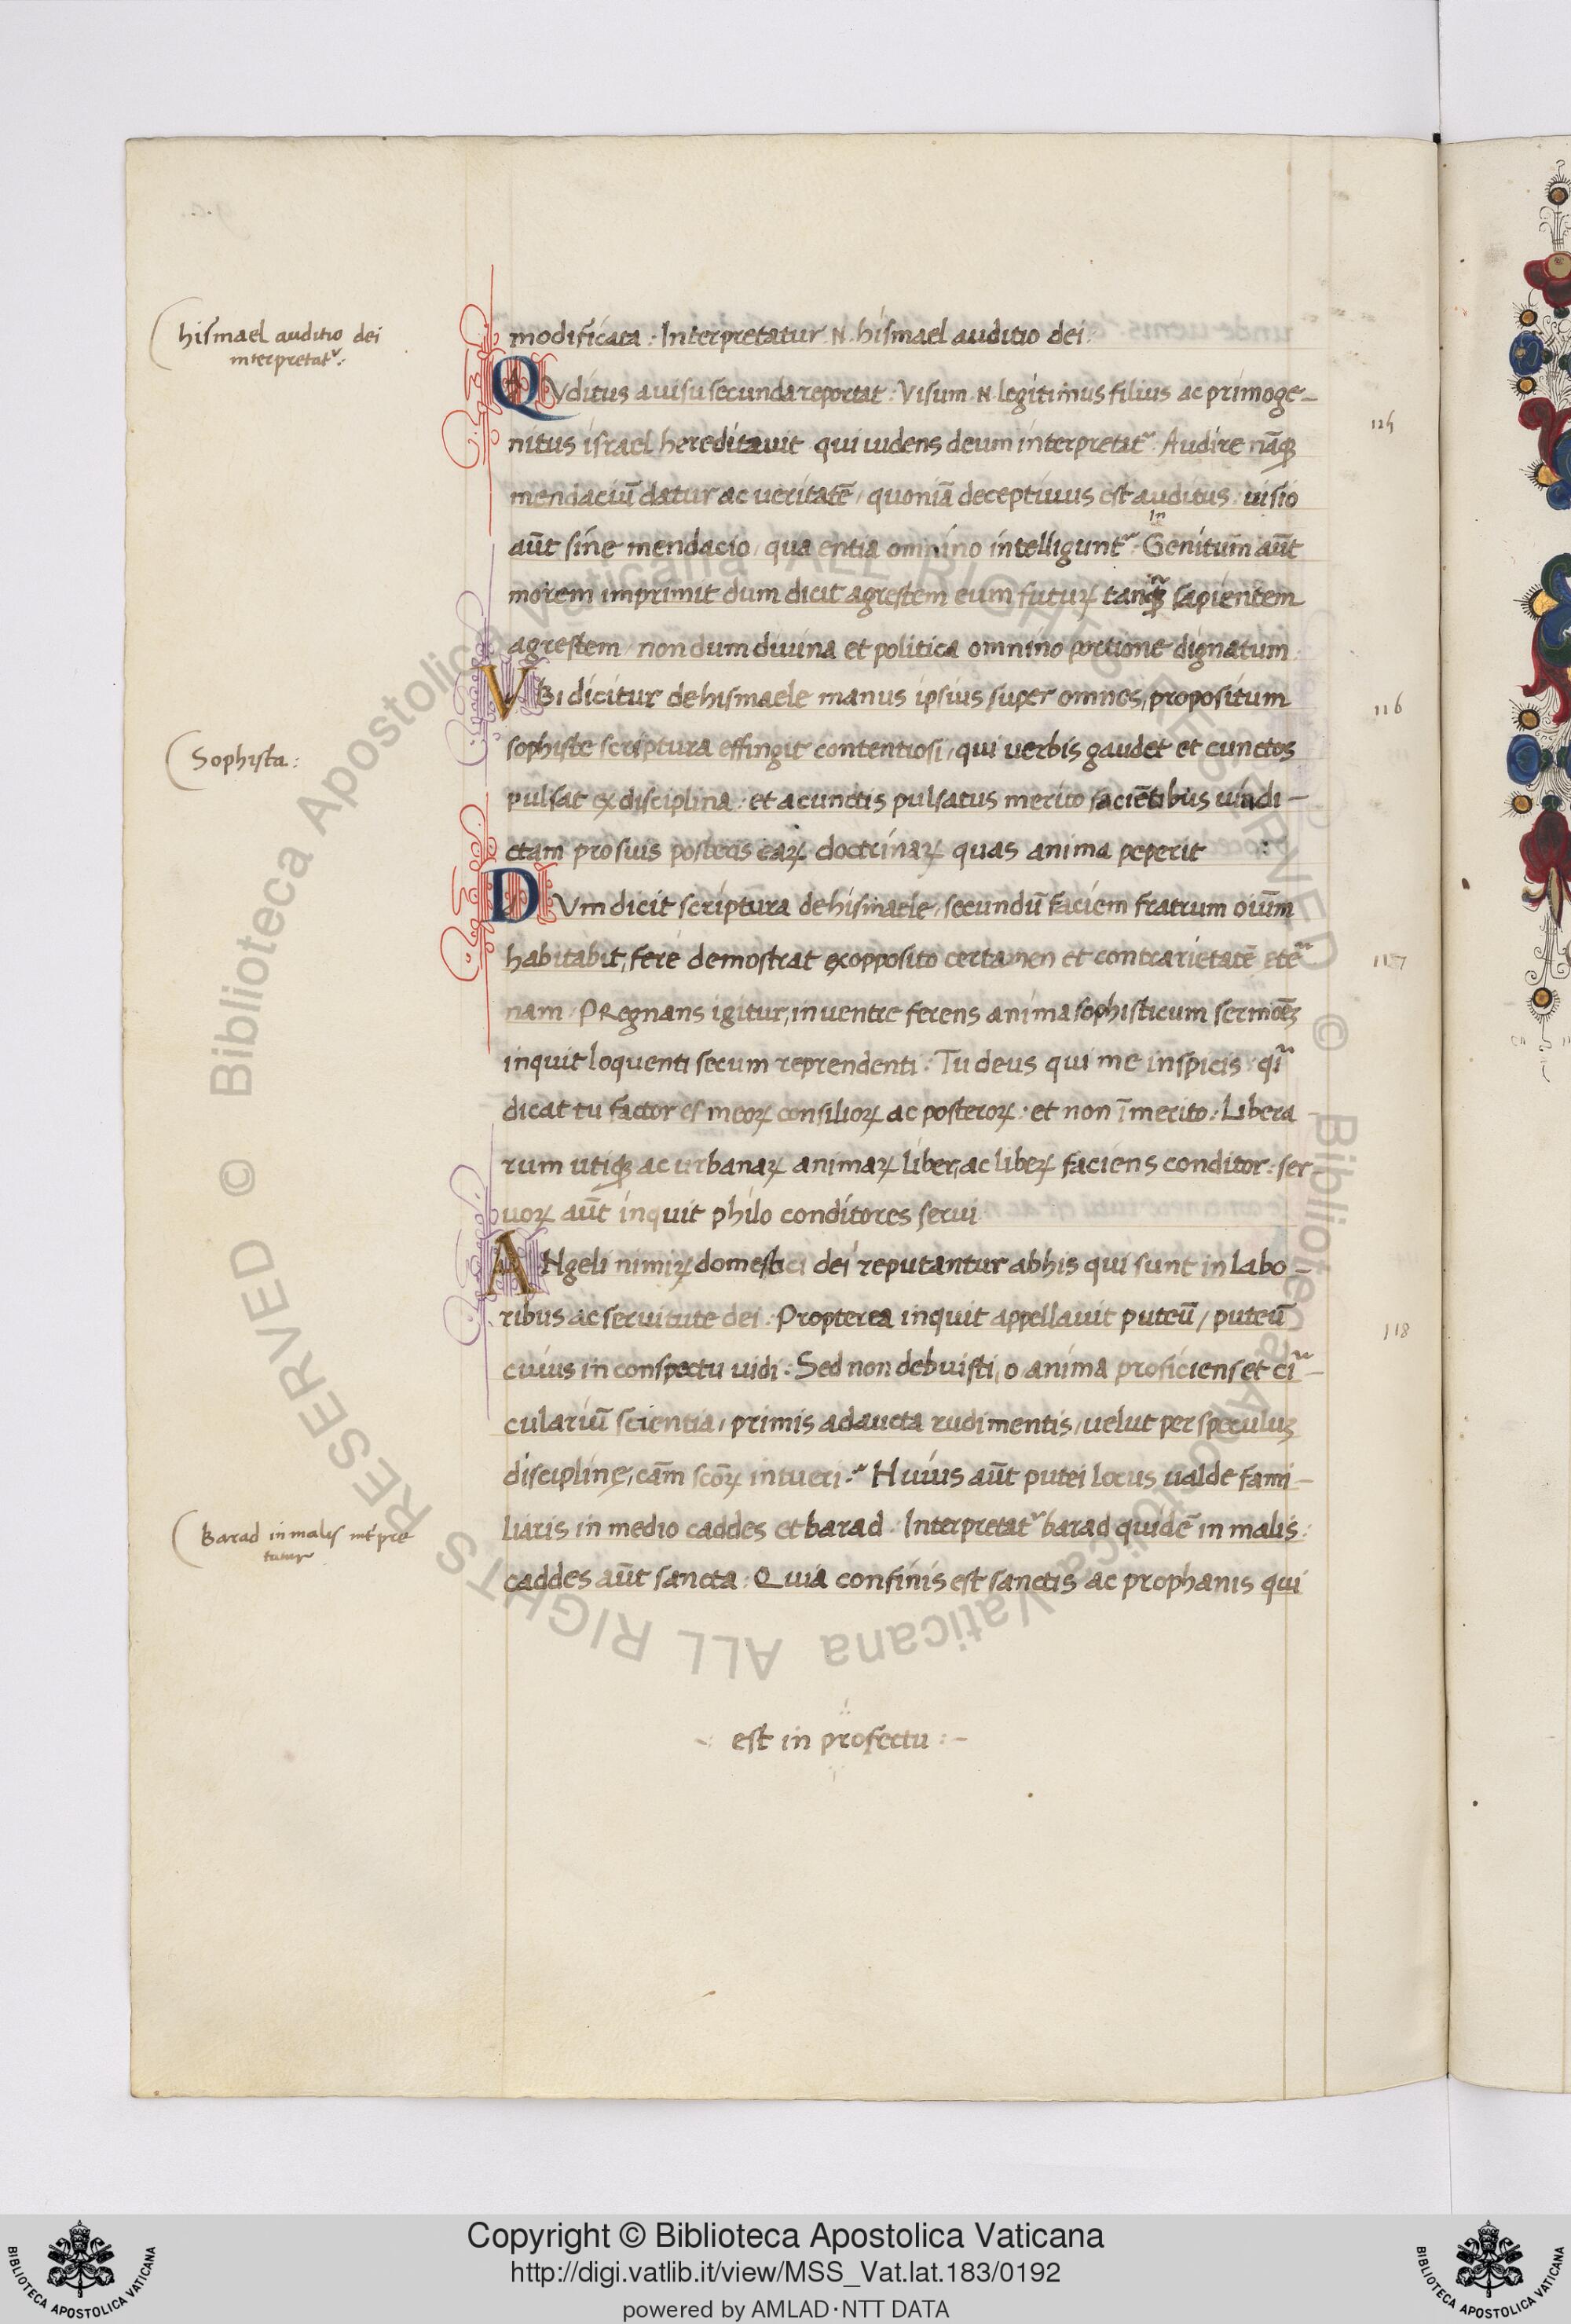 hismael auditio dei
interpretat᷑:
modificata : Interpretatur .N. hismael auditio dei:
QVditus a uisu secunda reportat : Visum .N. legitimus filius ac primoge-
nitus israel hereditauit qui uidens deum interpretat᷑. Audire nāqꝫ
mendaciū datur ac ueritatē, quoniā deceptiuus est auditus : uisio
In
aūt sine mendacio, qua entia omnino intelligunt᷑. Genitum aūt
morem imprimit dum dicit agrestem eum futurꝝ tanqꝫ sapientem
agrestem, nondum diuina et politica omnino portione dignatum.
VBi dicitur de hismaele manus ipsius super omnes, propositum
Sophista:
sophiste scriptura effingit contentiosi, qui verbis gaudet et cunctos
pulsat ex disciplina : et a cunctis pulsatus merito faciētibus uindi-
ctam pro suis posteris eaꝝ doctrinaꝝ quas anima peperit :
DVm dicit scriptura de hismaele, secundū faciem fratrum oīum
habitabit, fere demostrat ex opposito certamen et contrarietatē etẽ
nam. PRegnans igitur, in uentre ferens anima sophisticum sermoēꝫ
inquit loquenti secum reprendenti : Tu deus qui me inspicis : qi᷑
dicat tu factor es meoꝝ consilioꝝ ac posteroꝝ : et non īmerito : Libera
rum utiqꝫ ac urbanaꝝ animaꝝ liber, ac libeꝝ faciens conditor : ser-
uoꝝ aūt inquit philo conditores serui
ANgeli nimiꝝ domestici dei reputantur ab his qui sunt in labo-
ribus ac seruitute dei : Propterea inquit appellauit puteū / puteū
cuius in conspectu uidi : Sed non debuisti, o anima proficiens et ci᷑-
culariū scientia, primis adaucta rudimentis, uelut per speculuꝫ
discipline, cām scōꝝ intueri : Huius aūt putei locus ualde fami-
Barad in malis int̄pre
tatur
liaris in medio caddes et barad : Interpretat᷑ barad quidē in malis :
caddes aūt sancta : Quia confinis est sanctis ac prophanis qui
est in profectu : -
116
117
118
Copyright © Biblioteca Apostolica Vaticana
http://digi.vatlib.it/view/MSS_Vat.lat.183/0192
powered by AMLAD·NTT DATA
BIBLIOTECA APOSTOLICA VATICANA
BIBLIOTECA APOSTOLICA VATICANA
© Biblioteca Apostolica Vaticana ALL RIGHTS RESERVED © Biblioteca Apostolica Vaticana ALL RIGHTS RESERVED